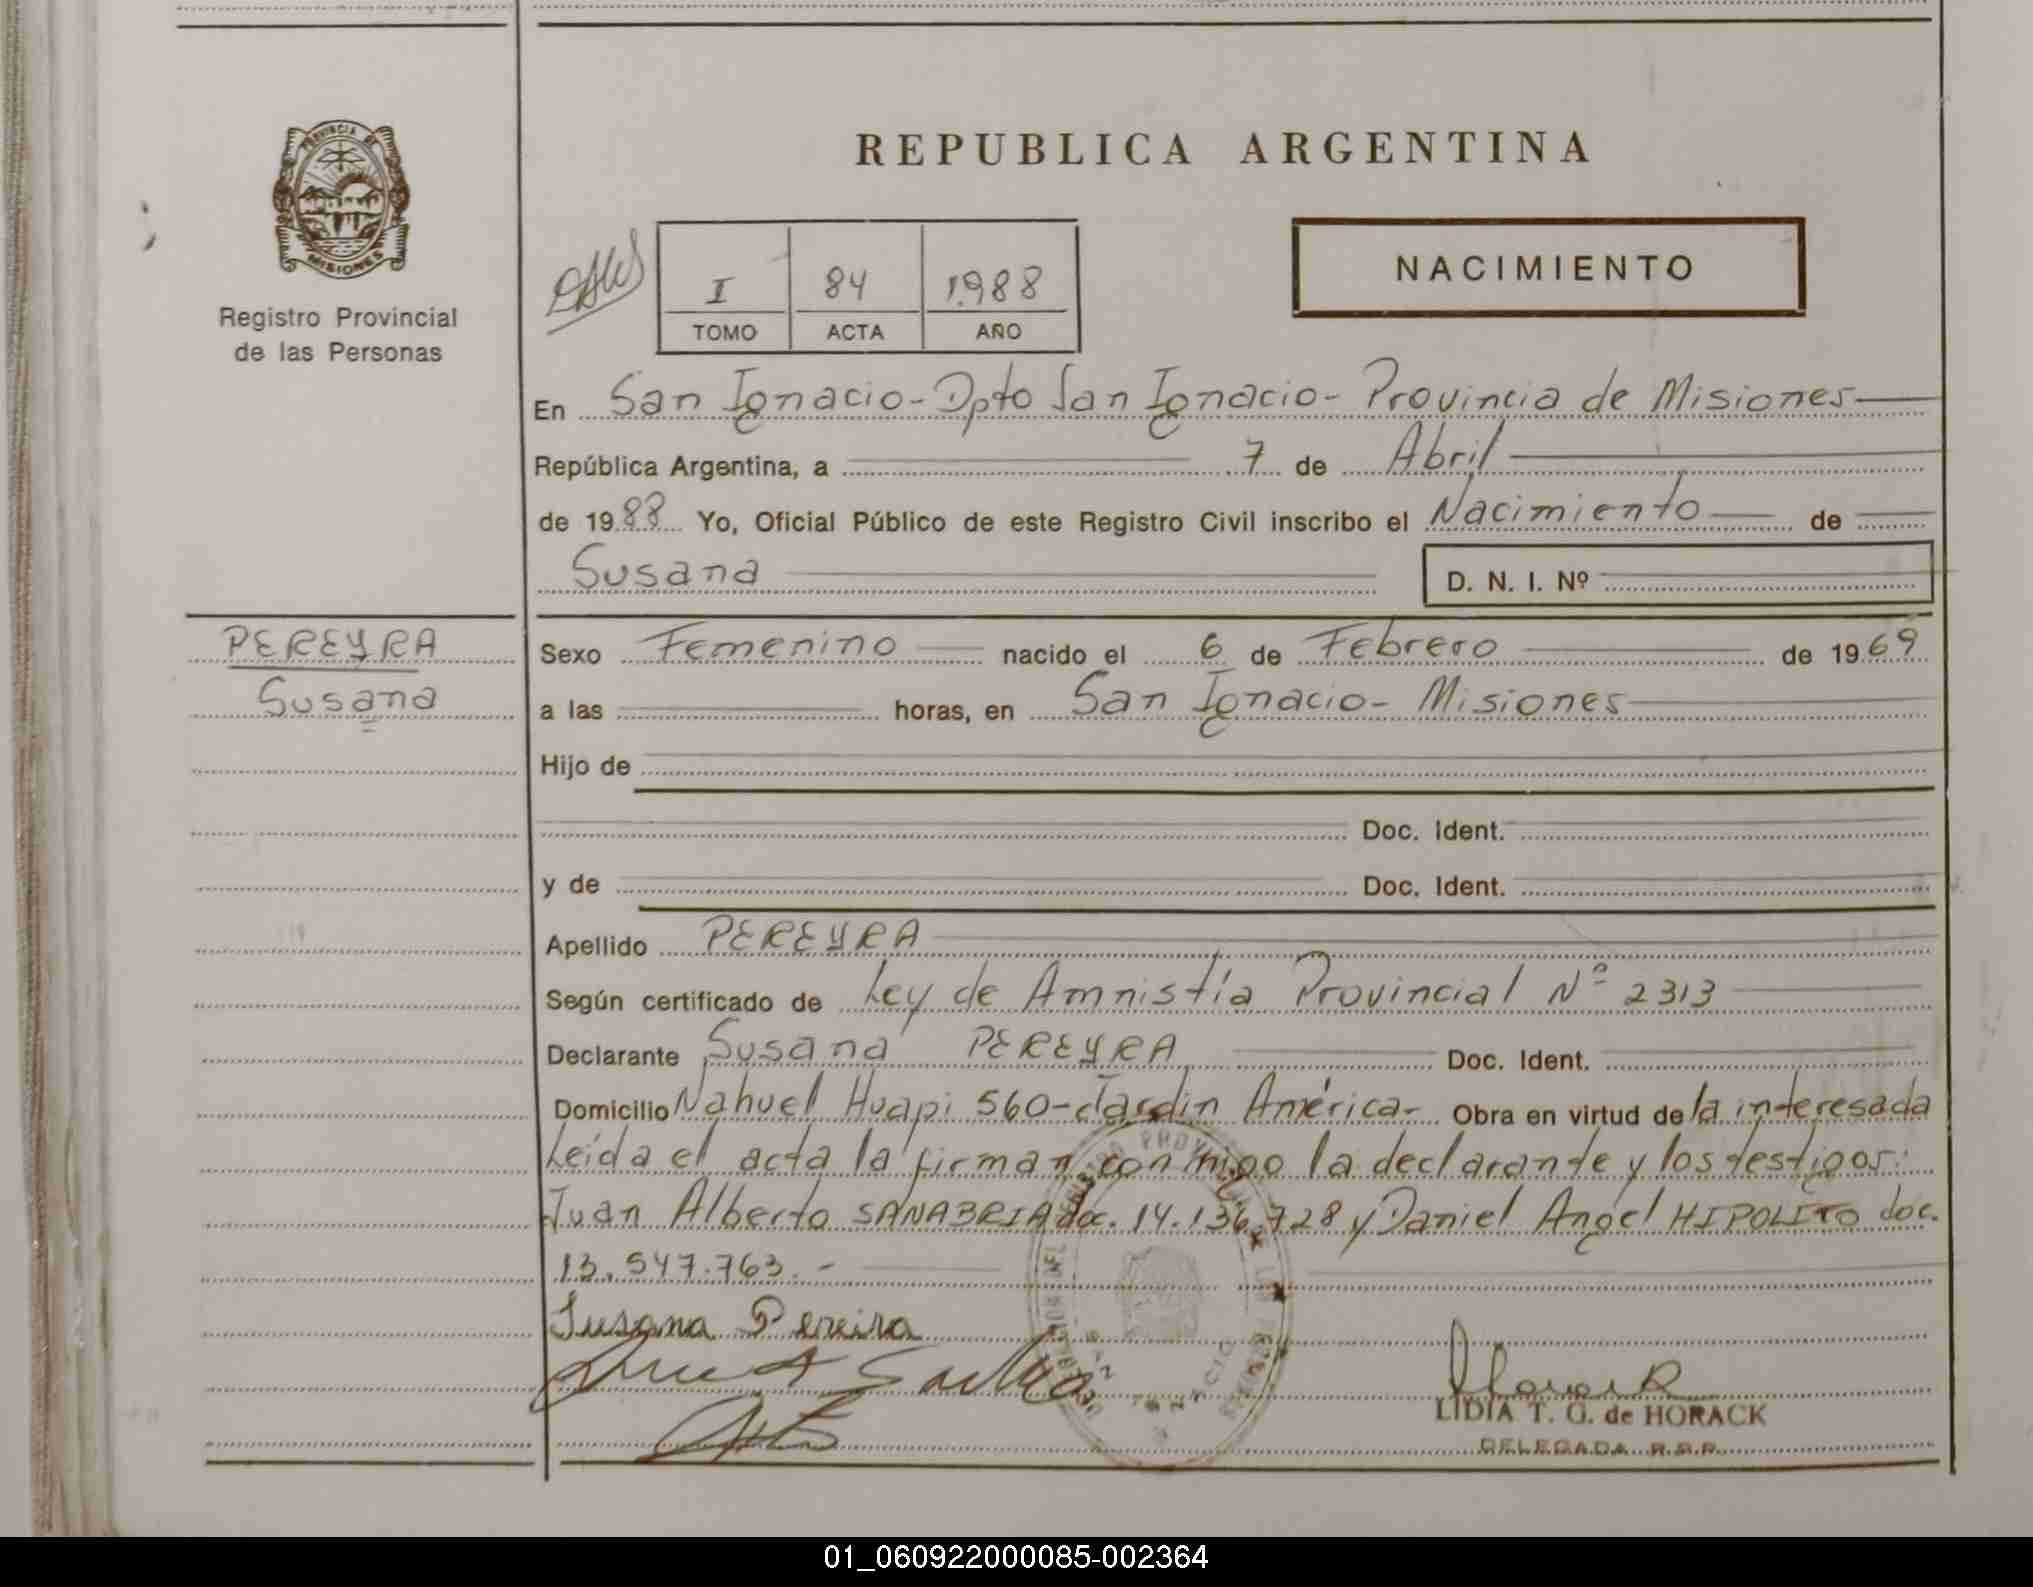 REPUBLICA ARGENTINA
PROVINCIA DE
MISIONES
Registro Provincial
de las Personas
I 84 1988
TOMO ACTA AÑO
NACIMIENTO
En San Ignacio-Dpto San Ignacio- Provincia de Misiones
República Argentina, a 7 de Abril
de 1988 Yo, Oficial Público de este Registro Civil inscribo el Nacimiento de
Susana
D. N. I. Nº
PEREYRA
Susana
Sexo Femenino nacido el 6 de Febrero de 1969
a las horas, en San Ignacio- Misiones
Hijo de
Doc. Ident.
y de Doc. Ident.
Apellido PEREYRA
Según certificado de Ley de Amnistía Provincial Nº 2313
Declarante Susana PEREYRA Doc. Ident.
Domicilio Nahuel Huapi 560-Jardin América- Obra en virtud de la interesada
Leída el acta la firman conmigo la declarante y los testigos:
Juan Alberto SANABRIA doc. 14.136.728 y Daniel Angel HIPOLITO doc.
13.547.763.-
Susana Pereira
LIDIA T. G. de HORACK
DELEGADA R.P.P.
01_060922000085-002364